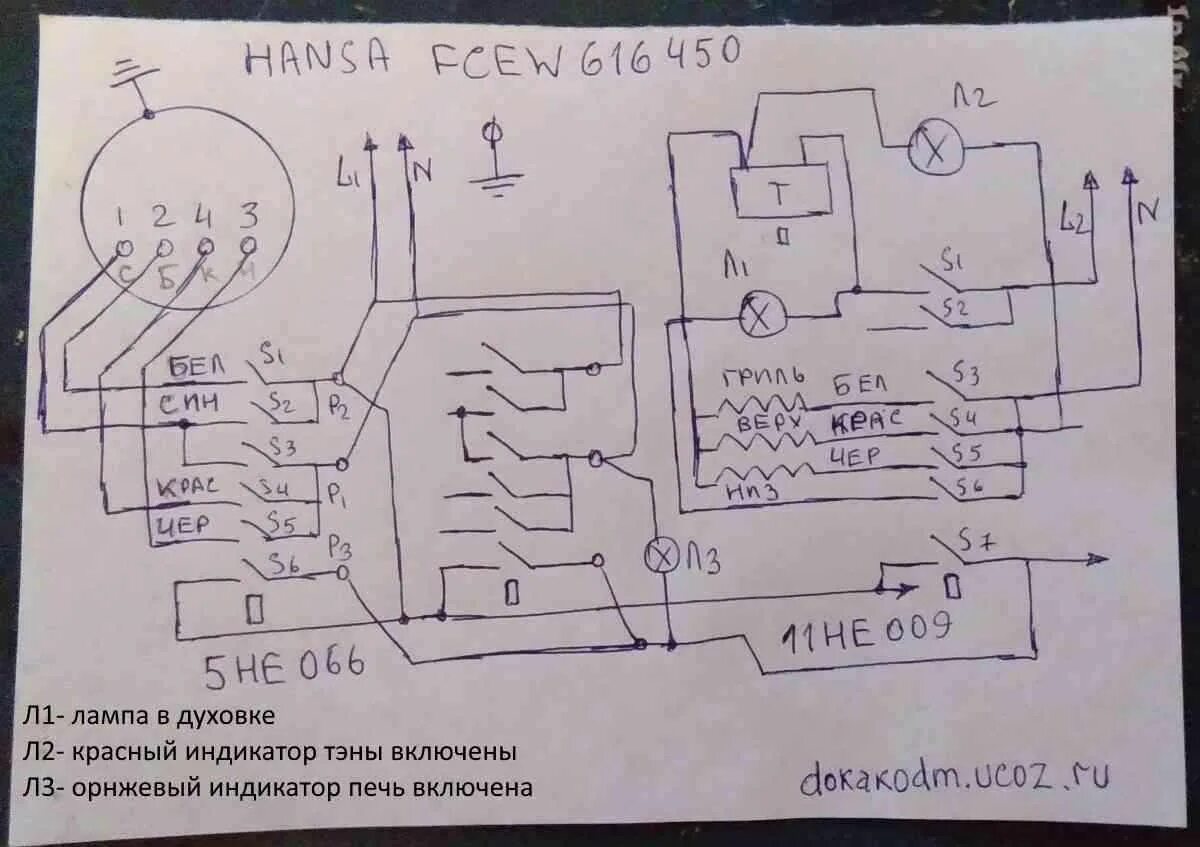 HANSA FCEW 616 450
Л2
L1
N
T
1 2 4 3
С Б К Ч
L2
N
Л1
S1
S2
БЕЛ S1
СИН S2
P2
S3
КРАС S4
P1
ЧЕР S5
P3
S6
ГРИЛЬ БЕЛ S3
ВЕРХ КРАС S4
ЧЕР S5
НИЗ S6
Л3
S7
5HE 066
11HE 009
Л1- лампа в духовке
Л2- красный индикатор тэны включены
Л3- орнжевый индикатор печь включена
dokakodm.ucoz.ru